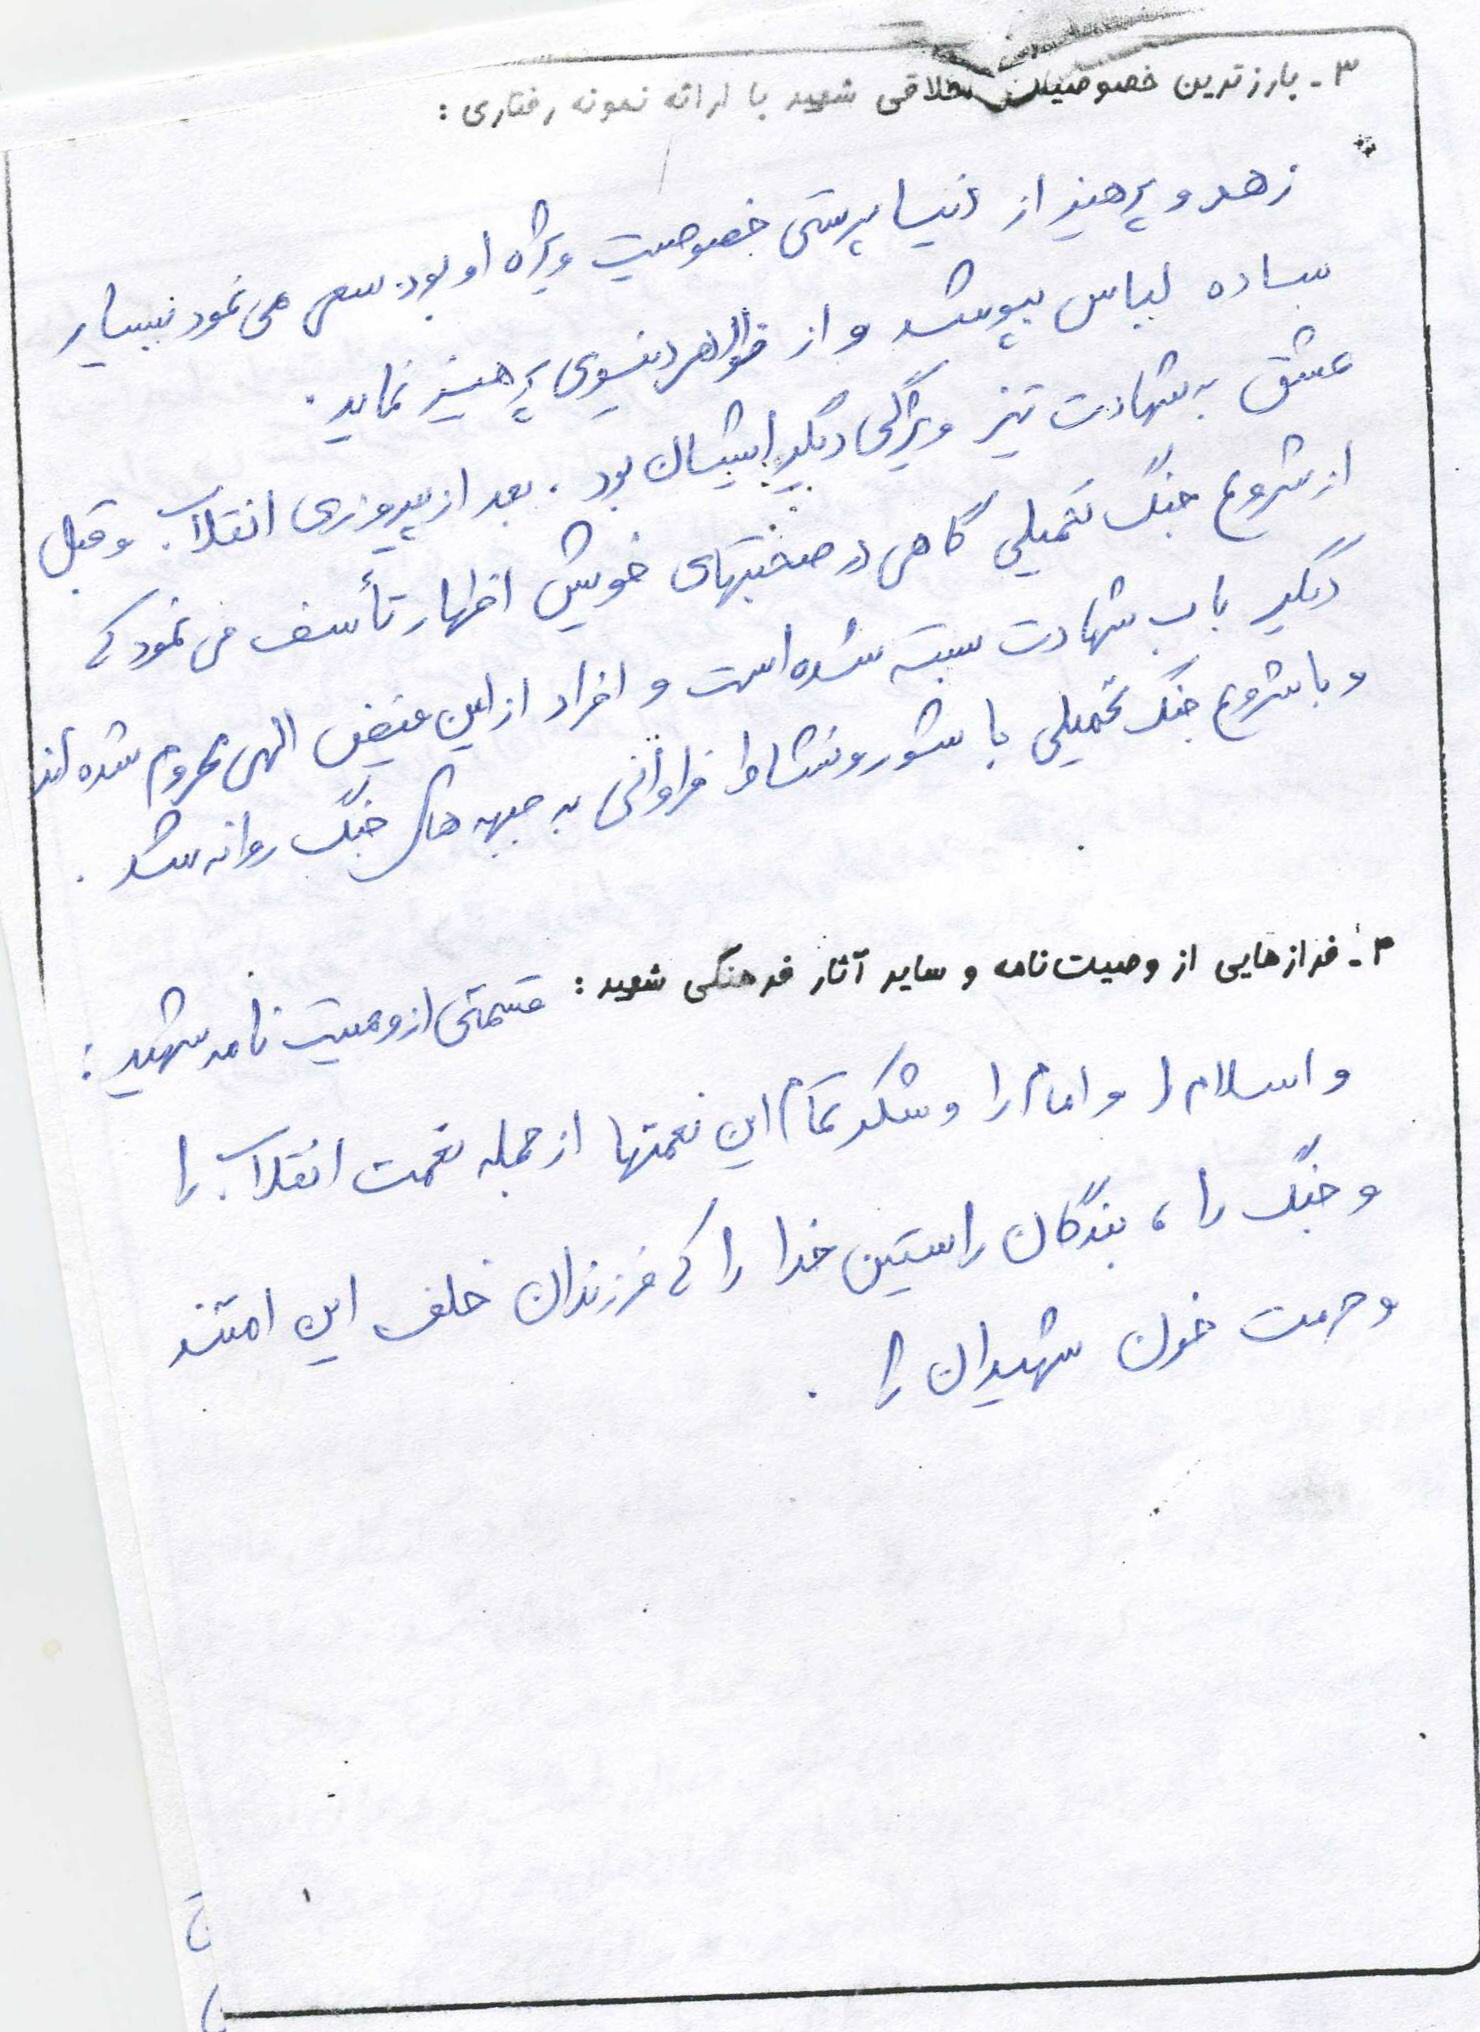 ۳- بارزترین خصوصیات اخلاقی شهید با ارائه نمونه رفتاری :
زهد و پرهیز از دنیا پرستی خصوصیت ویژه او بود. سعی می نمود بسیار
ساده لباس بپوشد و از ظواهر دنیوی پرهیز نماید.
عشق به شهادت نیز ویژگی دیگر ایشان بود . بعد از پیروزی انقلاب و قبل
از شروع جنگ تحمیلی گاهی در صحبتهای خویش اظهار تأسف می نمود که
دیگر باب شهادت بسته شده است و افراد از این فیض الهی محروم شده اند
و با شروع جنگ تحمیلی با شور و نشاط فراوانی به جبهه های جنگ روانه شد .
۴- فرازهایی از وصیت نامه و سایر آثار فرهنگی شهید : قسمتی از وصیت نامه شهید :
و اسلام را و امام را و شکر تمام این نعمتها از جمله نعمت انقلاب را
و جنگ را ، بندگان راستین خدا را که فرزندان خلف این امتند
و حرمت خون شهیدان را .